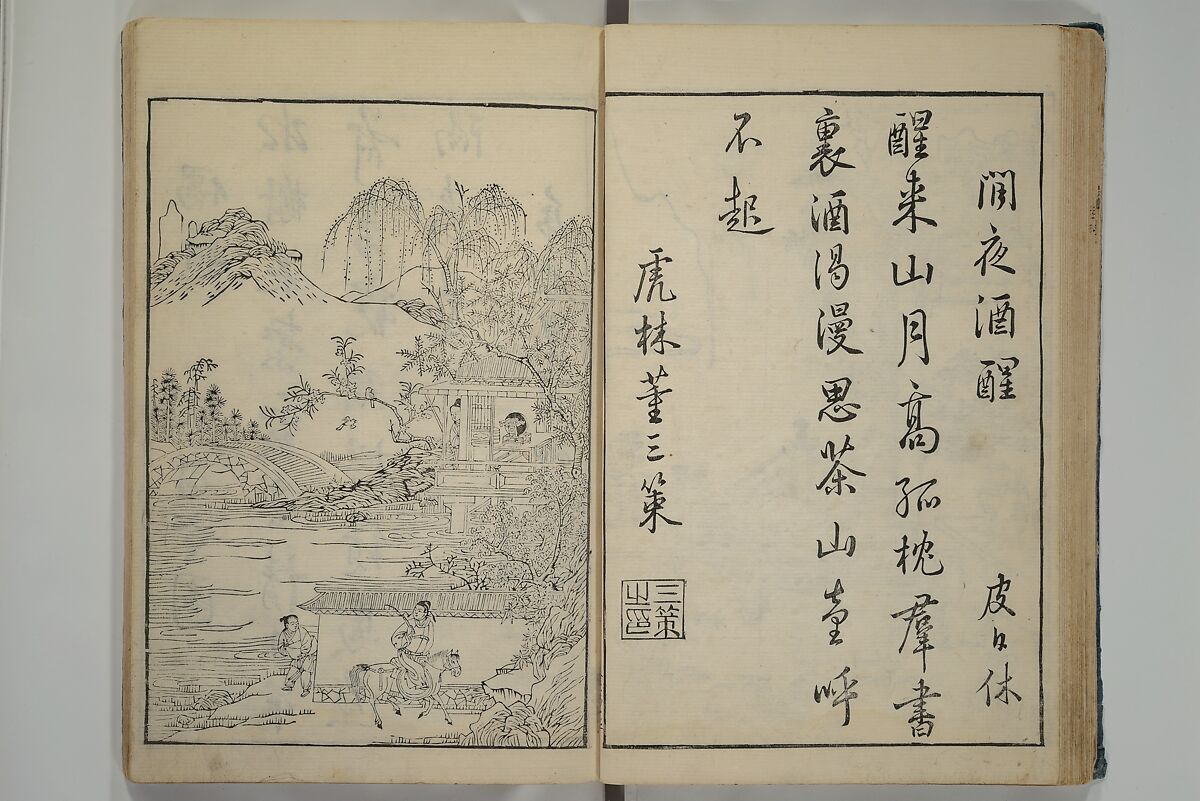 閒夜酒醒
皮日休
醒来山月高孤枕羣書
裏酒渴漫思茶山童呼
不起
虎林董三策
三策
之印